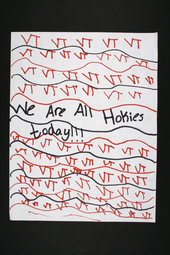 VT VT VT VT VT
VT VT VT VT VT VT
VT VT VT VT VT VT
VT VT VT VT VT VT
We Are All Hokies
today!!!
VT VT VT VT VT
VT VT VT VT VT VT VT
VT VT VT VT VT VT VT
VT VT VT VT VT VT VT
VT VT VT VT VT VT VT
VT VT VT VT VT VT VT
VT VT VT VT VT VT VT